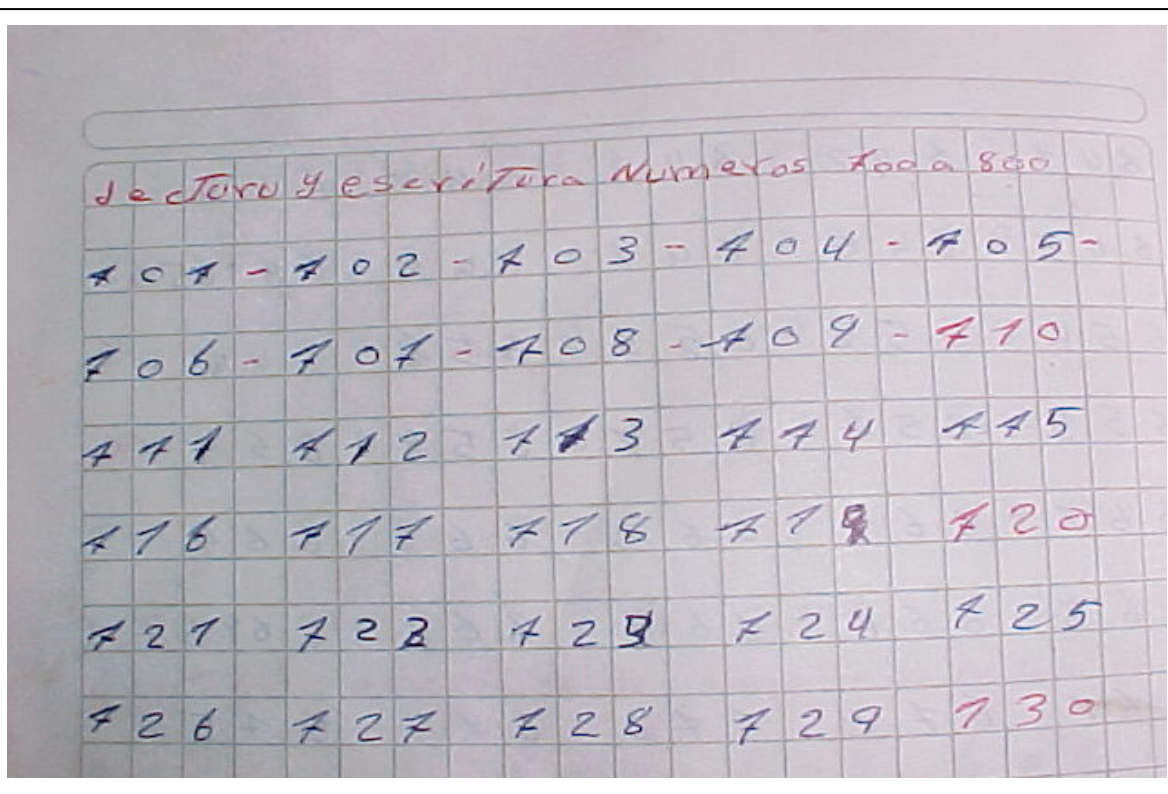 Jectura y escritura Numeros 700 a 800
707 - 702 - 703 - 704 - 705 -
706 - 707 - 708 - 709 - 710
711 712 713 714 715
716 717 718 719 720
721 722 723 724 725
726 727 728 729 130